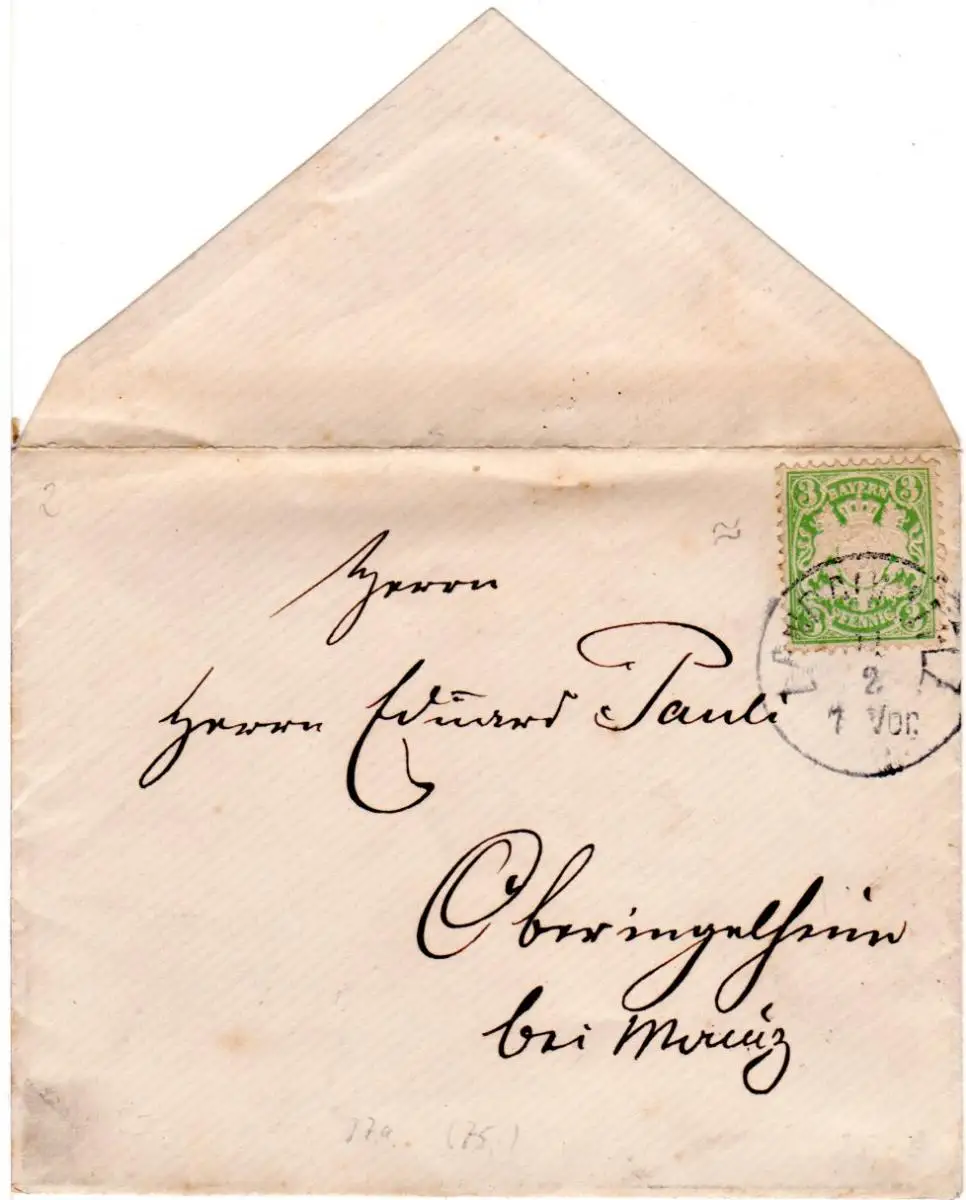 3 BAYERN 3
3 PFENNIG 3
2
7 Vor.
2
Herrn
Herrn Eduard Pauli
Oberingelheim
bei Mainz
17a. (75.)